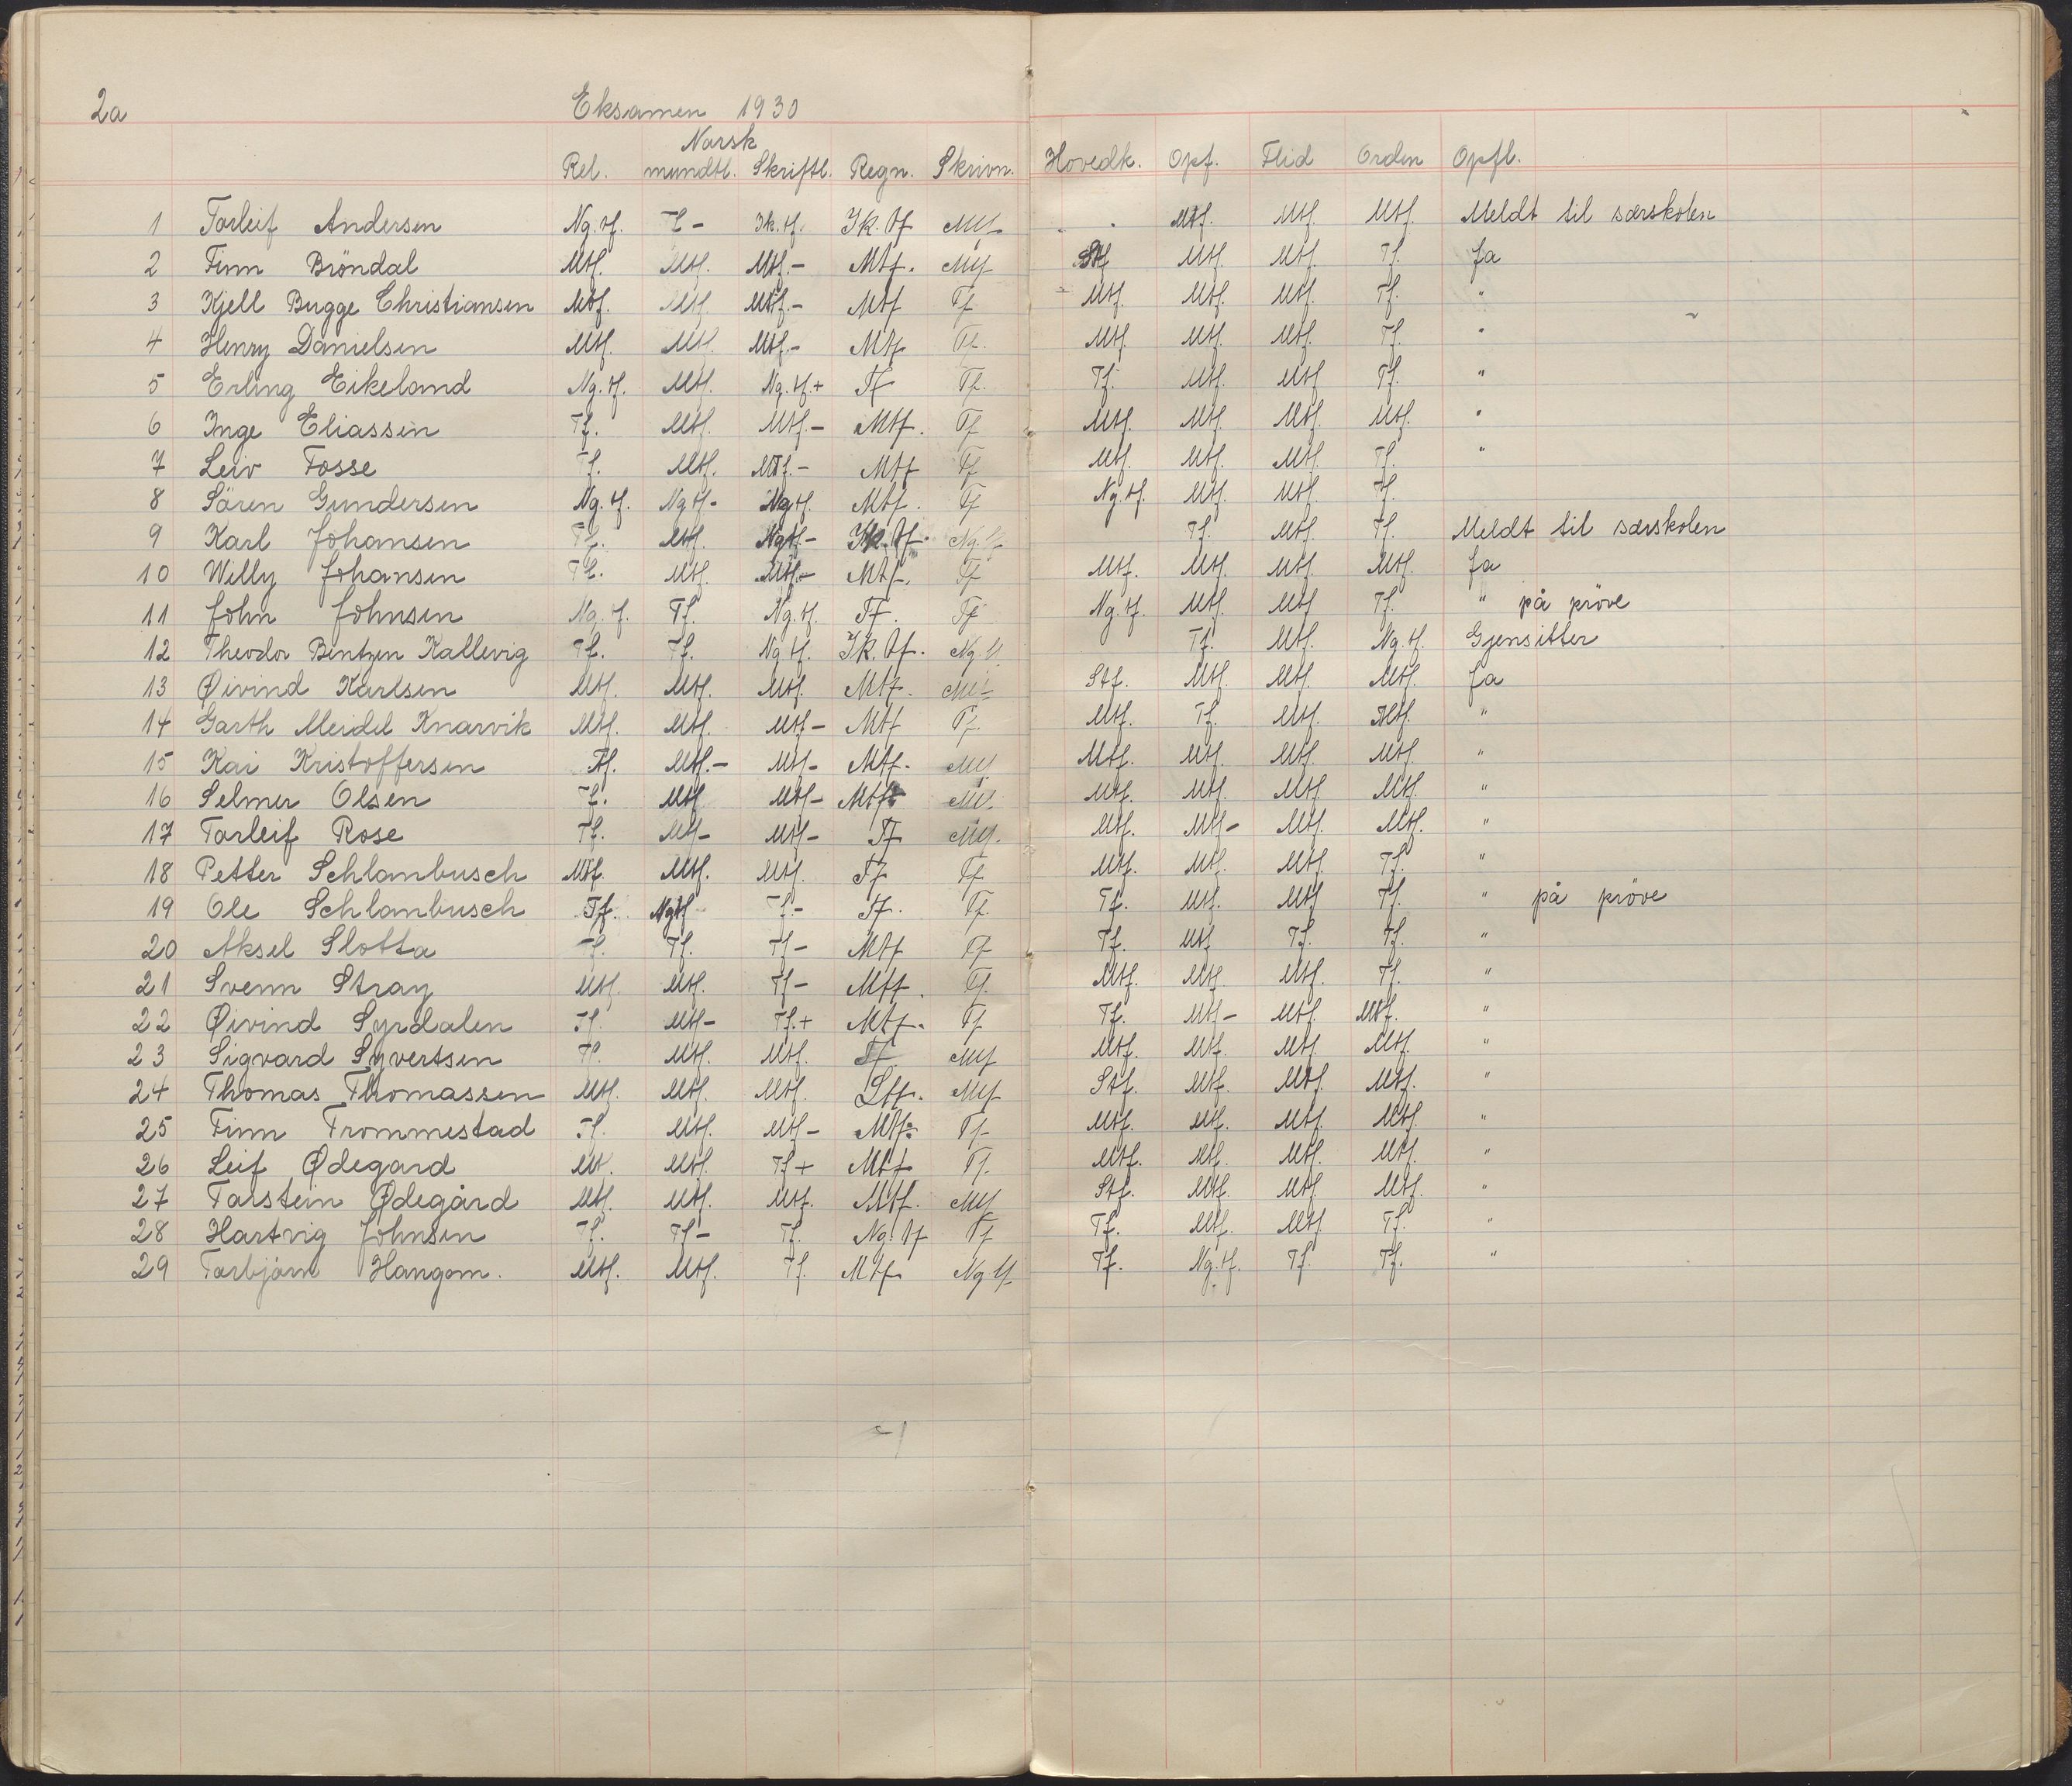 2a Eksamen 1930
Norsk
Rel. mundtl. Skriftl. Regn. Skrivn. Hovedk. Opf. Flid Orden Opfl.
1 Torleif Andersen Ng.tf. Tf- Ik.tf. Ik.tf Mtf Mtf. Mtf. Mtf. Meldt til særskolen
2 Finn Bröndal Mtf. Mtf. Mtf.- Mtf. Mtf Stf Mtf. Mtf. Tf. Ja
3 Kjell Bugge Christiansen Mtf. Mtf. Mtf.- Mtf Tf Mtf. Mtf. Mtf. Tf. "
4 Henry Danielsen Mtf. Mtf. Mtf.- Mtf Tf. Mtf. Mtf. Mtf. Tf. "
5 Erling Eikeland Ng.tf. Mtf. Ng.tf.+ Tf Tf. Tf. Mtf. Mtf Tf. "
6 Inge Eliassen Tf. Mtf. Mtf.- Mtf. Tf Mtf. Mtf. Mtf. Mtf. "
7 Leiv Fosse Tf. Mtf. Mtf.- Mtf Tf Mtf. Mtf. Mtf. Tf. "
8 Sören Gundersen Ng.tf. Ngtf- Ngtf. Mtf. Tf Ng.tf. Mtf. Mtf. Tf.
9 Karl Johansen Tf. Mtf. Ngtf- Ik.tf. Ng.tf Tf. Mtf. Tf. Meldt til særskolen
10 Willy Johansen Tf. Mtf. Mtf.- Mtf. Tf Mtf. Mtf. Mtf. Mtf. Ja
11 John Johnsen Ng.tf. Tf. Ng.tf. Tf. Tf Ng.tf. Mtf. Mtf Tf. " på pröve
12 Theodor Bentzen Kallevig Tf. Tf. Ng tf. Ik.tf. Ng.tf. Tf. Mtf. Ng.tf. Gjensitter
13 Øivind Karlsen Mtf. Mtf. Mtf. Mtf. Mtf Stf. Mtf. Mtf. Mtf. Ja
14 Garth Meidel Knarvik Mtf. Mtf. Mtf- Mtf Tf. Mtf. Tf. Mtf. Mtf. "
15 Kai Kristoffersen Tf. Mtf.- Mtf- Mtf. Mtf Mtf. Mtf. Mtf. Mtf. "
16 Selmer Olsen Tf. Mtf Mtf- Mtf Mtf. Mtf. Mtf. Mtf Mtf. "
17 Torleif Rose Tf. Mtf- Mtf- Tf Mtf. Mtf. Mtf- Mtf. Mtf. "
18 Petter Schlambusch Mtf. Mtf. Mtf. Tf Tf Mtf. Mtf. Mtf. Tf. "
19 Ole Schlambusch Tf. Ngtf Tf.- Tf. Tf. Tf. Mtf. Mtf Tf. " på pröve
20 Aksel Slotta Tf. Tf. Tf- Mtf Tf Tf. Mtf Tf. Tf. "
21 Svenn Stray Mtf. Mtf. Tf- Mtf. Tf. Mtf. Mtf. Mtf. Tf. "
22 Øivind Syrdalen Tf. Mtf- Tf.+ Mtf. Tf Tf. Mtf- Mtf. Mtf. "
23 Sigvard Syvertsen Tf. Mtf. Mtf. Tf Mtf Mtf. Mtf. Mtf. Mtf. "
24 Thomas Thomassen Mtf. Mtf. Mtf. Stf. Mtf Stf. Mtf. Mtf Mtf. "
25 Finn Trommestad Tf. Mtf. Mtf- Mtf. Tf Mtf. Mtf. Mtf. Mtf. "
26 Leif Ødegard Mtf. Mtf. Tf+ Mtf Tf. Mtf. Mtf. Mtf. Mtf. "
27 Torstein Ødegård Mtf. Mtf. Mtf. Mtf. Mtf Stf. Mtf. Mtf. Mtf. "
28 Hartvig Johnsen Tf. Tf- Tf. Ng.tf Tf Tf. Mtf. Mtf Tf. "
29 Torbjörn Hangom. Mtf. Mtf. Tf. Mtf Ng tf Tf. Ng.tf. Tf. Tf. "